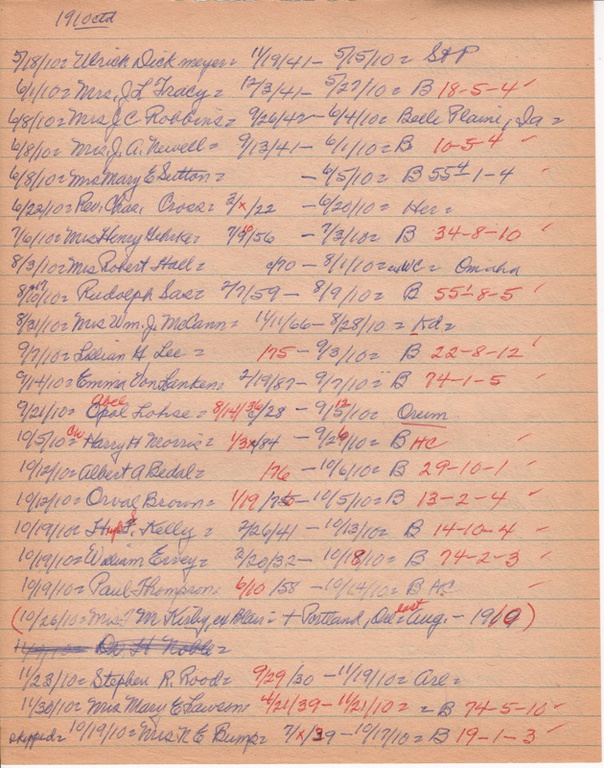 1910 ctd
5/18/10 = Ulrick Dickmeyer = 11/19/41 - 5/15/10 = StP
6/1/10 = Mrs. J L Tracy = 12/3/41 - 5/27/10 = B 18-5-4 ✓
6/8/10 = Mrs J C Robbins = 9/26/42 - 6/4/10 = Belle Plaine, Ia =
6/8/10 = Mrs. J. A. Newell = 9/13/41 - 6/1/10 = B 10-5-4 ✓
6/8/10 = Mrs Mary E Sutton = - 6/5/10 = B 55-1-4 ✓
6/22/10 = Rev. Chas. Cross = 2/x/22 - 6/20/10 = Her =
7/6/10 = Mrs Henry Gehrke = /56 - 7/3/10 = B 34-8-10 ✓
8/3/10 = Mrs Robert Hall = c/70 - 8/1/10 = Omaha
8/10/10 = Rudolph Sas = 2/7/59 - 8/9/10 = B 55-8-5 ✓
8/31/10 = Mrs Wm. J. McCann = 1/11/66 - 8/28/10 = Kd =
9/7/10 = Lillian H Lee = /75 - 9/3/10 = B 22-8-12 ✓
9/14/10 = Emma Von Lanken = 2/19/87 - 9/7/10 = B 74-1-5 ✓
9/21/10 = Opal Lohse = 8/14/ /28 - 9/ /10 = Orum
10/5/10 = Harry H Morris = 1/3x/84 - 9/ /10 = B HC ✓
10/12/10 = Albert A Bedal = /76 - 10/6/10 = B 29-10-1 ✓
10/12/10 = Orval Brown = 1/19/ - 10/5/10 = B 13-2-4 ✓
10/19/10 = Kelly = 2/26/41 - 10/13/10 = B 14-10-4 ✓
10/19/10 = William Ervey = 2/20/32 - 10/18/10 = B 74-2-3 ✓
10/19/10 = Paul Thompson = 6/10/58 - 10/14/10 = B HC ✓
(10/26/10 = Mrs M Kirby, ex Blair = + Portland, Ore = last Aug. - 1910)
Dr H Noble =
11/23/10 = Stephen R. Rood = 9/29/30 - 11/19/10 = Arl =
11/30/10 = Mrs Mary E Lawson = 4/21/39 - 11/21/10 = = B 74-5-10 ✓
skipped = 10/19/10 = Mrs N E Bump = 7/x/39 - 10/17/10 = B 19-1-3 ✓